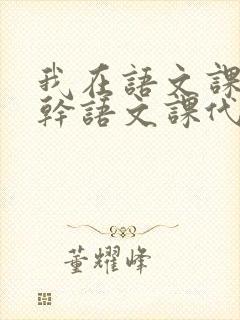 我在語文課
幹語文課代
董耀峰